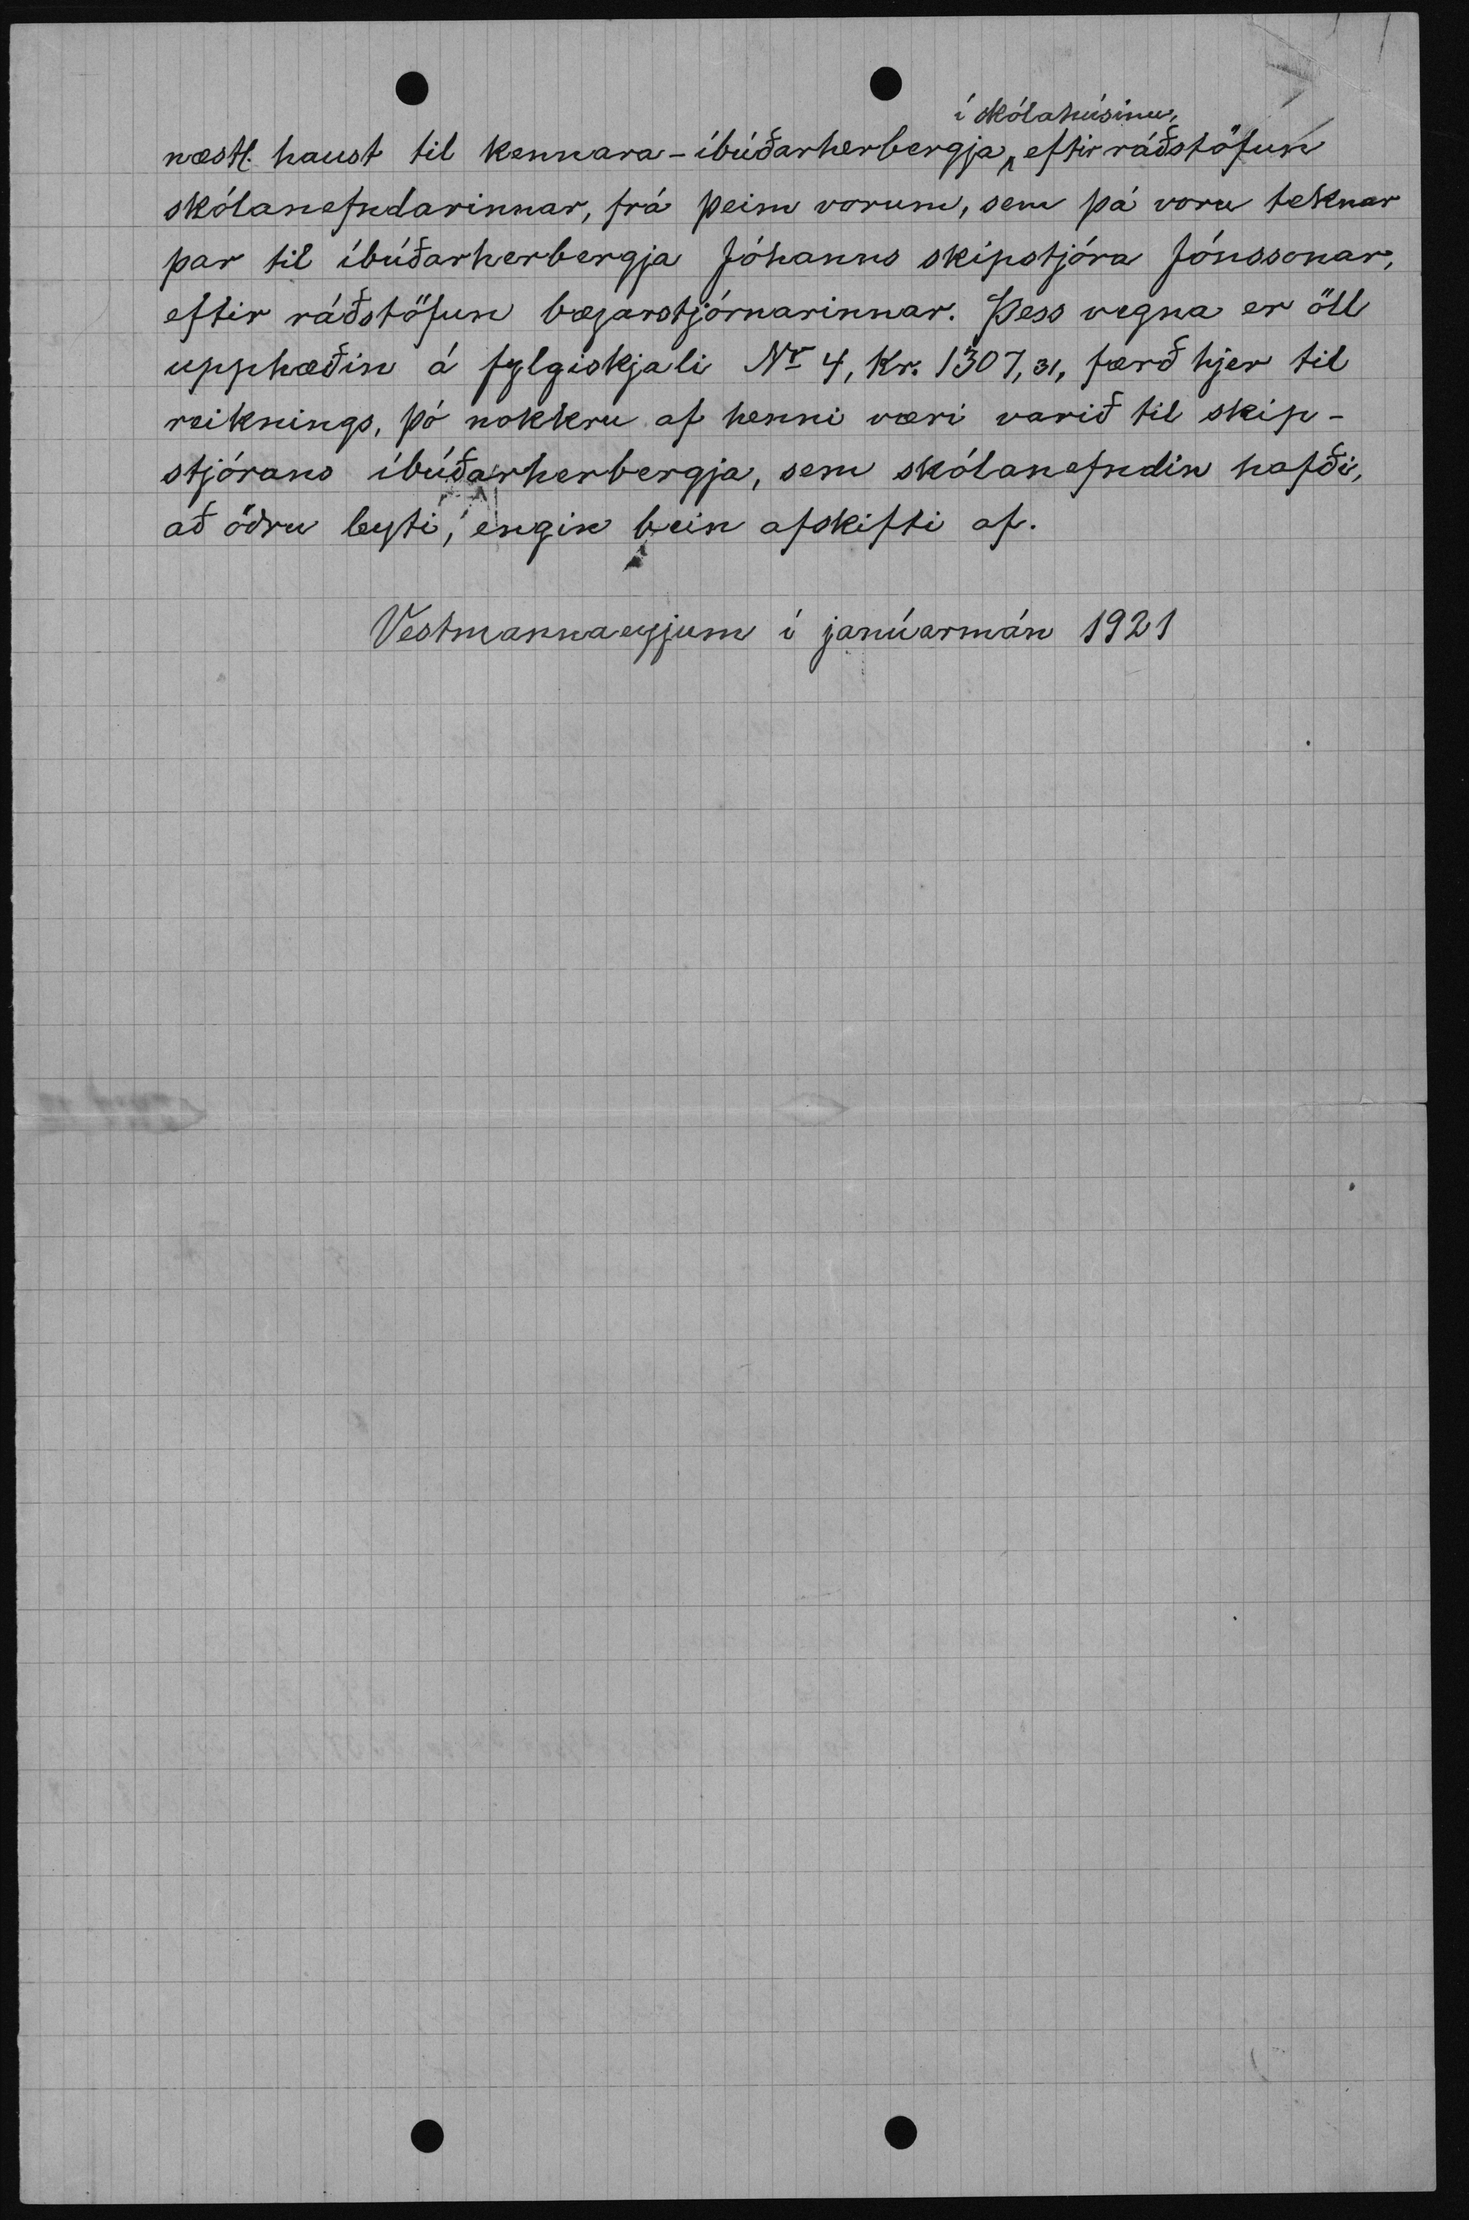 í skólahúsinu,
næstl. haust til kennara-íbúðarherbergja, eftir ráðstöfun
skólanefndarinnar, frá þeim vorum, sem þá voru teknar
þar til íbúðarherbergja Jóhanns skipstjóra Jónssonar,
eftir ráðstöfun bæjarstjórnarinnar. Þess vegna er öll
upphæðin á fylgiskjali Nr 4, Kr. 1307,31, færð hjer til
reiknings, þó nokkru af henni væri varið til skip-
stjórans íbúðarherbergja, sem skólanefndin hafði,
að öðru leyti, engin bein afskifti af.
Vestmannaeyjum í janúarmán 1921